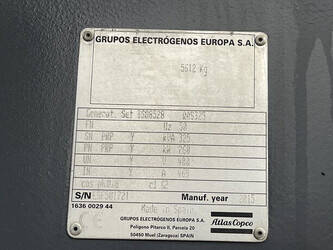 GRUPOS ELECTRÓGENOS EUROPA S.A.
5612 Kg
Generat. Set QAS325
FN Hz 50
SN PRP V kVA 325
PN PRP V kW 260
UN V V 400
IN V A 469
cos phi 0.8 cl G2
S/N Manuf. year 2015
1636 0029 44 Made in Spain
GRUPOS ELECTRÓGENOS EUROPA S.A.
Poligono Pitarco II, Parcela 20
50450 Muel (Zaragoza) SPAIN
Atlas Copco